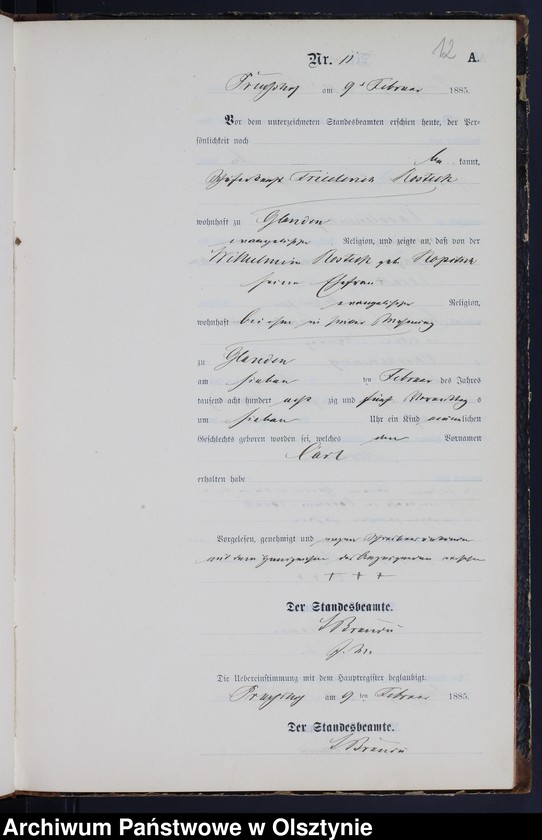 12
Nr. 11 A.
am 9 Februar 1885.
Vor dem unterzeneichneten Standesbeamten erschien heute, der Per-
sönlichkeit nach
be kannt,
Friedrich Kosteck
wohnhaft zu Glanden
evangelischer Religion, und zeigte an, daß von der
Wilhelmine Kosteck geb.
seiner Ehefrau
evangelischer Religion,
wohnhaft bei ihm in seiner Wohnung
zu Glanden
am sieben ten Februar des Jahres
tausend acht hundert acht zig und fünf Vormittags
um sieben Uhr ein Kind männlichen
Geschlechts geboren worden sei, welches den Vornamen
Carl
erhalten habe
Vorgelesen, genehmigt und wegen Schreibensunkunde
mit dem Handzeichen des Anzeigenden versehen
+ + +
Der Standesbeamte.
Die Uebereinstimmung mit dem Hauptregister beglaubigt.
am 9 ten Februar 1885.
Der Standesbeamte.
Archiwum Państwowe w Olsztynie